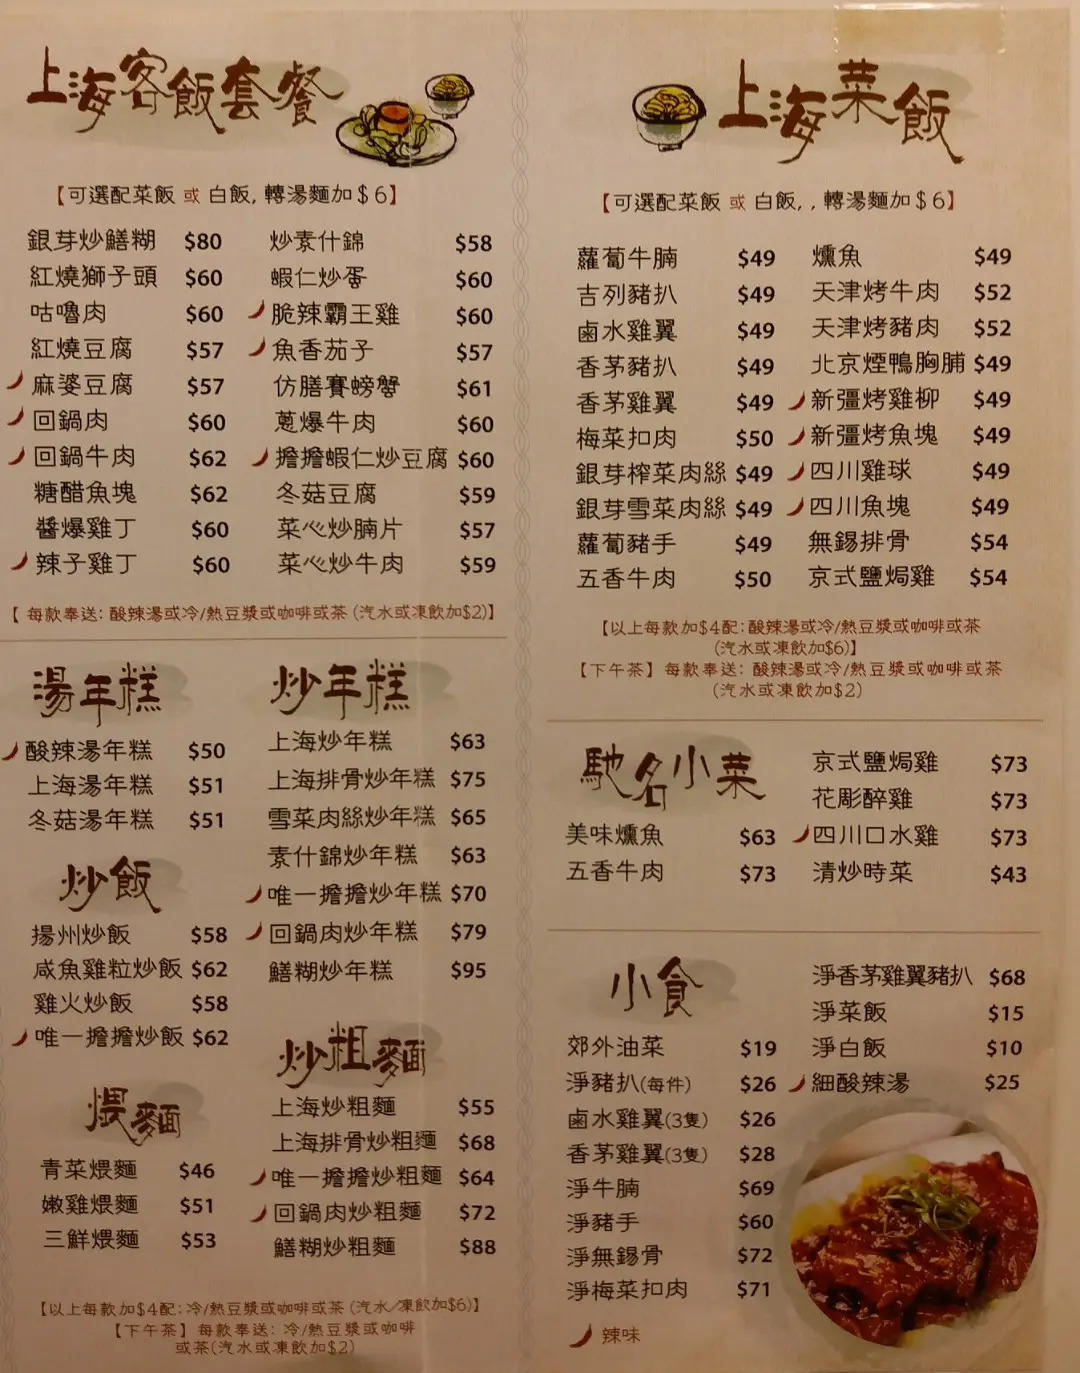 上海客飯套餐
【可選配菜飯 或 白飯, 轉湯麵加$6】
銀芽炒鱔糊 $80
紅燒獅子頭 $60
咕嚕肉 $60
紅燒豆腐 $57
麻婆豆腐 $57
回鍋肉 $60
回鍋牛肉 $62
糖醋魚塊 $62
醬爆雞丁 $60
辣子雞丁 $60
炒素什錦 $58
蝦仁炒蛋 $60
脆辣霸王雞 $60
魚香茄子 $57
仿膳賽螃蟹 $61
蔥爆牛肉 $60
擔擔蝦仁炒豆腐 $60
冬菇豆腐 $59
菜心炒腩片 $57
菜心炒牛肉 $59
【 每款奉送: 酸辣湯或冷/熱豆漿或咖啡或茶 (汽水或凍飲加$2)】
湯年糕
酸辣湯年糕 $50
上海湯年糕 $51
冬菇湯年糕 $51
炒飯
揚州炒飯 $58
咸魚雞粒炒飯 $62
雞火炒飯 $58
唯一擔擔炒飯 $62
煨麵
青菜煨麵 $46
嫩雞煨麵 $51
三鮮煨麵 $53
炒年糕
上海炒年糕 $63
上海排骨炒年糕 $75
雪菜肉絲炒年糕 $65
素什錦炒年糕 $63
唯一擔擔炒年糕 $70
回鍋肉炒年糕 $79
鱔糊炒年糕 $95
炒粗麵
上海炒粗麵 $55
上海排骨炒粗麵 $68
唯一擔擔炒粗麵 $64
回鍋肉炒粗麵 $72
鱔糊炒粗麵 $88
【以上每款加$4配: 冷/熱豆漿或咖啡或茶 (汽水/凍飲加$6)】
【下午茶】 每款奉送: 冷/熱豆漿或咖啡
或茶(汽水或凍飲加$2)
上海菜飯
【可選配菜飯 或 白飯, , 轉湯麵加$6】
蘿蔔牛腩 $49
吉列豬扒 $49
鹵水雞翼 $49
香茅豬扒 $49
香茅雞翼 $49
梅菜扣肉 $50
銀芽榨菜肉絲 $49
銀芽雪菜肉絲 $49
蘿蔔豬手 $49
五香牛肉 $50
燻魚 $49
天津烤牛肉 $52
天津烤豬肉 $52
北京煙鴨胸脯 $49
新疆烤雞柳 $49
新疆烤魚塊 $49
四川雞球 $49
四川魚塊 $49
無錫排骨 $54
京式鹽焗雞 $54
【以上每款加$4配: 酸辣湯或冷/熱豆漿或咖啡或茶
(汽水或凍飲加$6)】
【下午茶】 每款奉送: 酸辣湯或冷/熱豆漿或咖啡或茶
(汽水或凍飲加$2)
馳名小菜
美味燻魚 $63
五香牛肉 $73
京式鹽焗雞 $73
花彫醉雞 $73
四川口水雞 $73
清炒時菜 $43
小食
郊外油菜 $19
淨豬扒(每件) $26
鹵水雞翼(3隻) $26
香茅雞翼(3隻) $28
淨牛腩 $69
淨豬手 $60
淨無錫骨 $72
淨梅菜扣肉 $71
淨香茅雞翼豬扒 $68
淨菜飯 $15
淨白飯 $10
細酸辣湯 $25
辣味